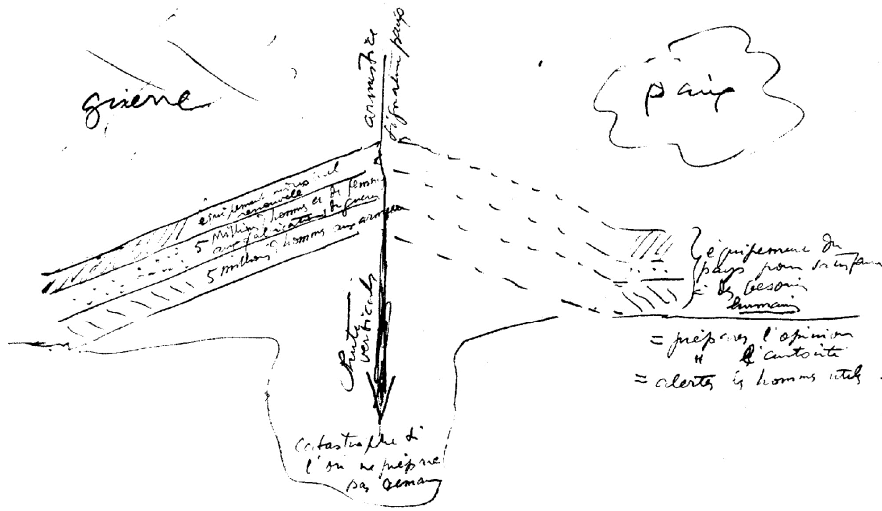 guerre
armistice
signature paix
paix
équipement industriel
renouvelé
5 millions d'hommes et de femmes
aux fabrications de guerre
5 millions d'hommes aux armées
Chute
verticale
catastrophe si
l'on ne prépare
pas demain
équipement du
pays pour satisfaire
à des besoins
humains
= préparer l'opinion
" l'autorité
= alerter les hommes utiles